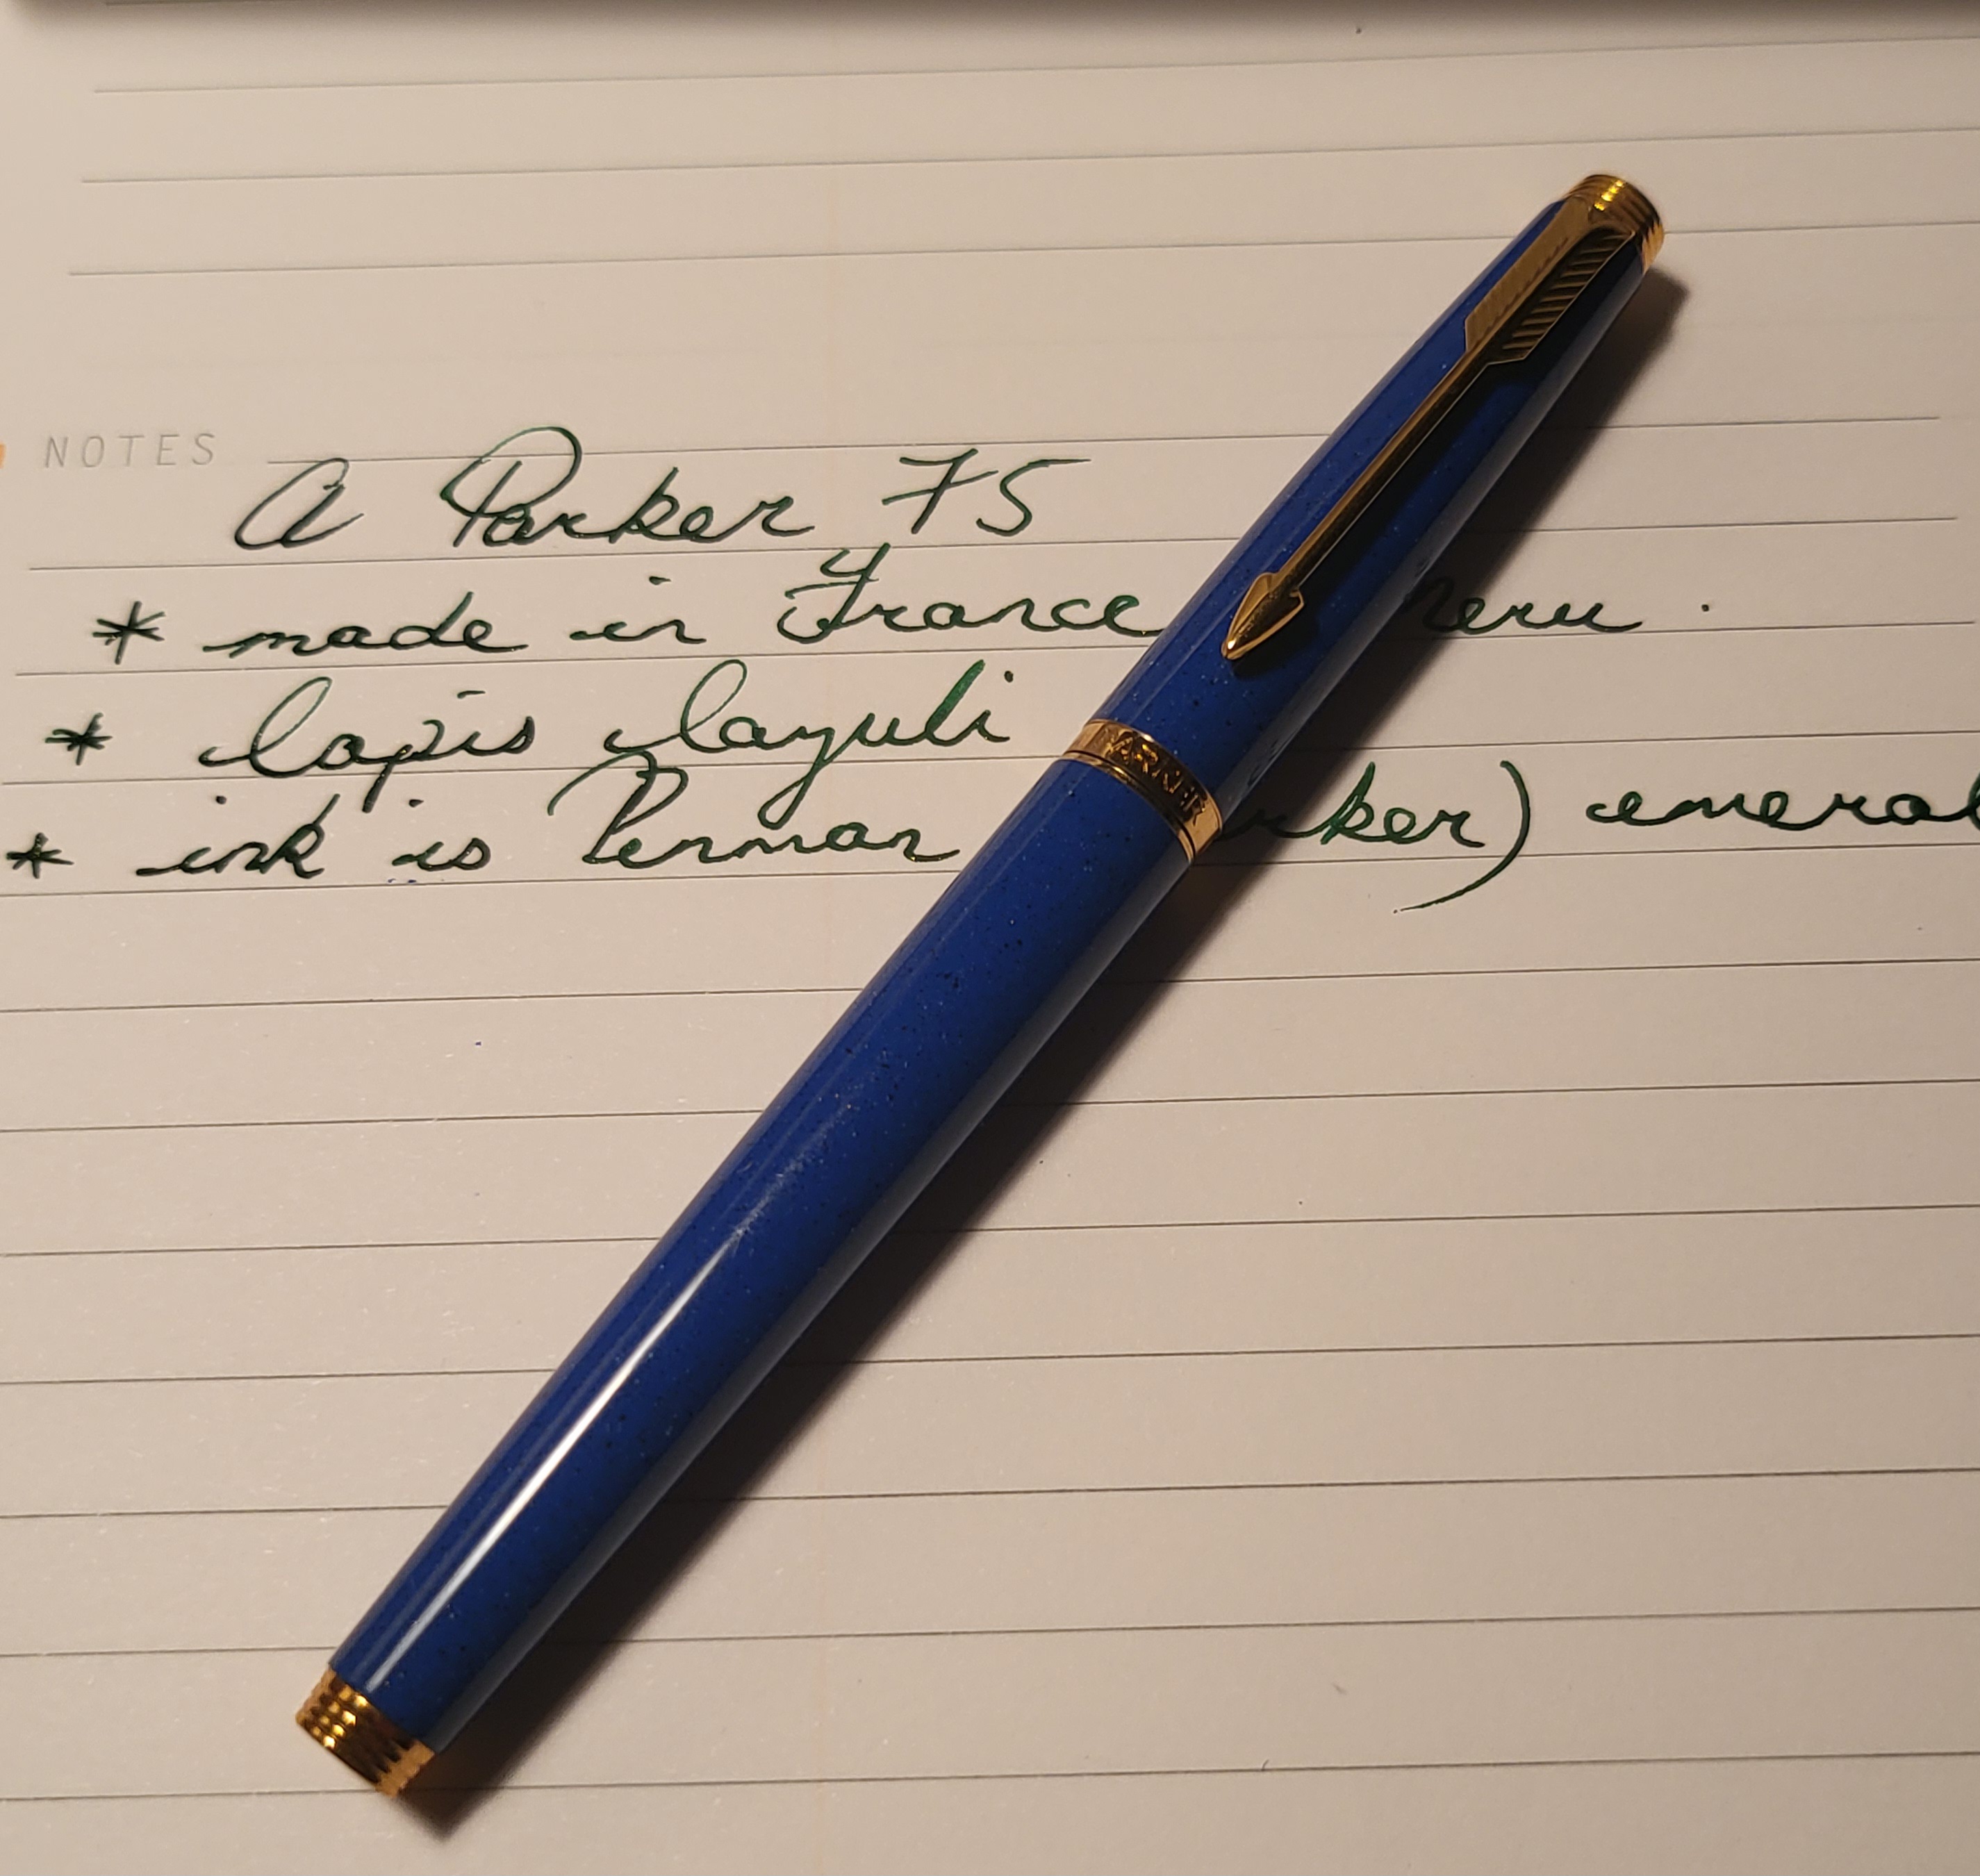 NOTES
A Parker 75
* made in France Meru.
* lapis lazuli
* ink is Penman rker) emeral
PARKER